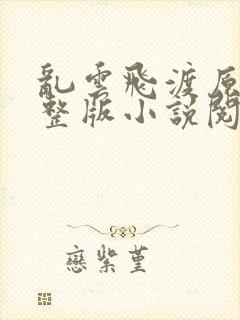 亂雲飛渡原
整版小說閱
戀紫堇